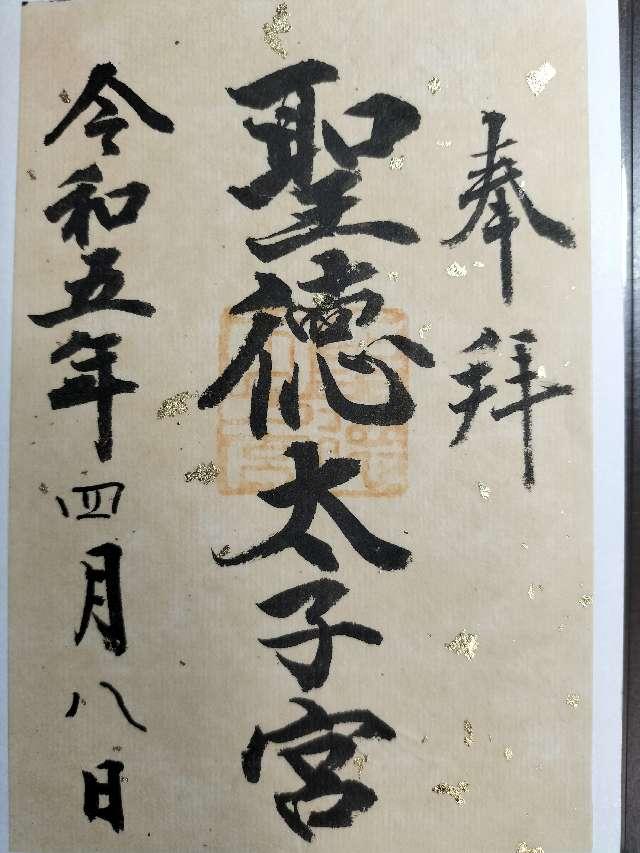 奉拝
聖徳太子宮
令和五年四月八日